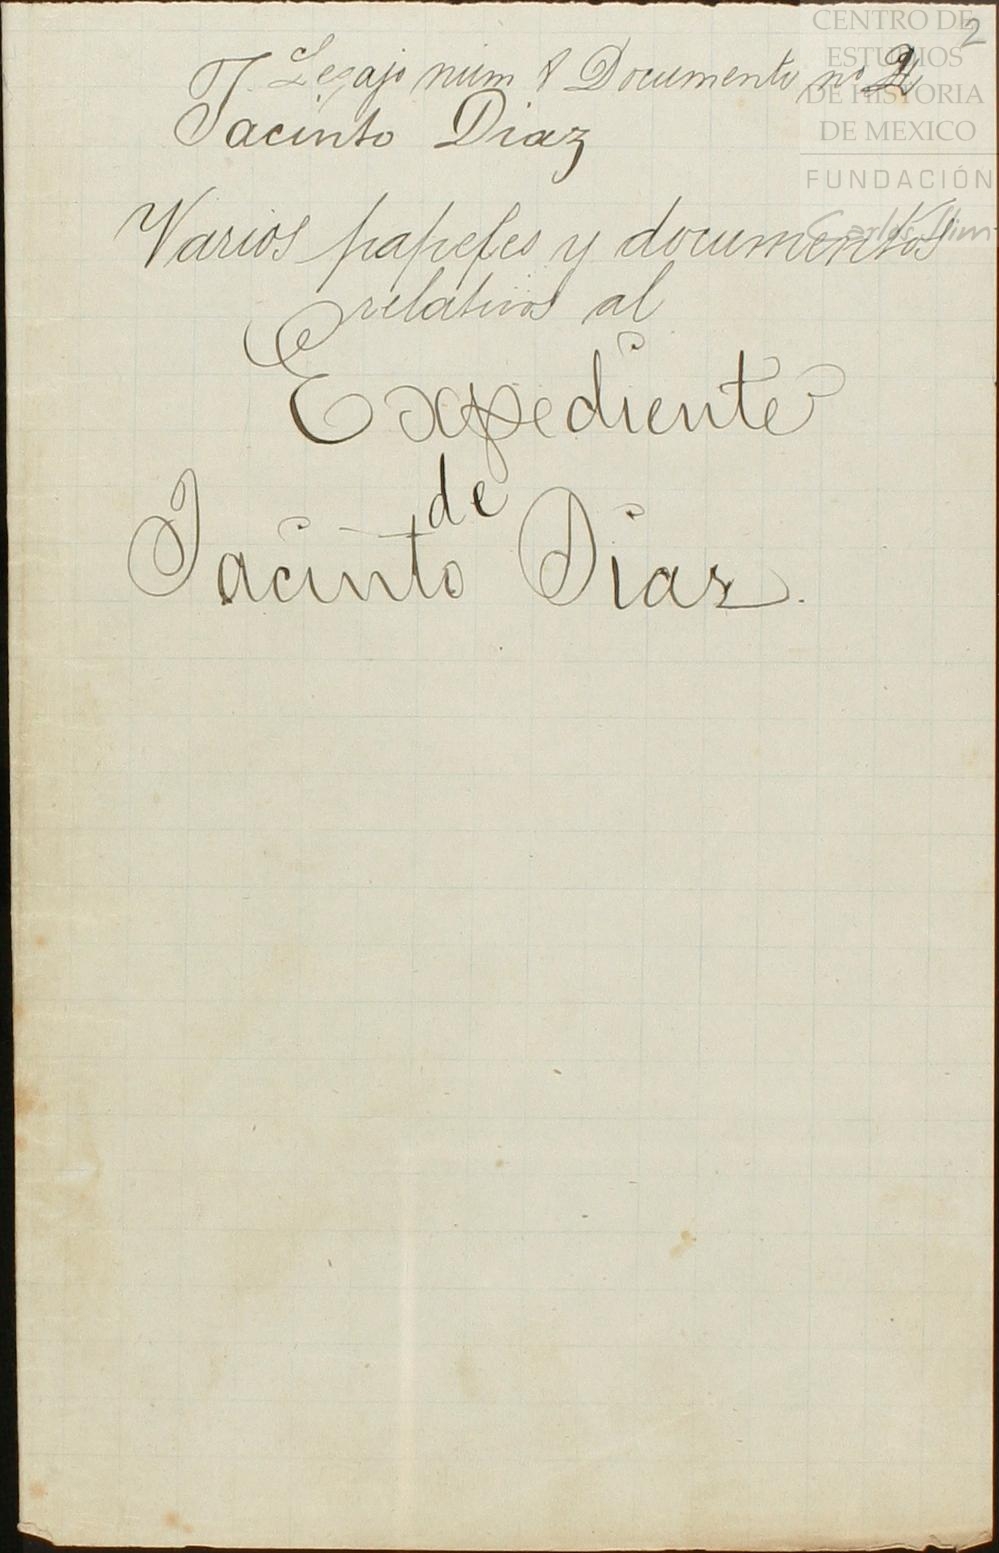 2
Legajo núm 8 Documento nº 2
Jacinto Diaz
Varios papeles y documentos
relativos al
Expediente
de
Jacinto Diaz.
CENTRO DE
ESTUDIOS
DE HISTORIA
DE MEXICO
FUNDACIÓN
Carlos Slim